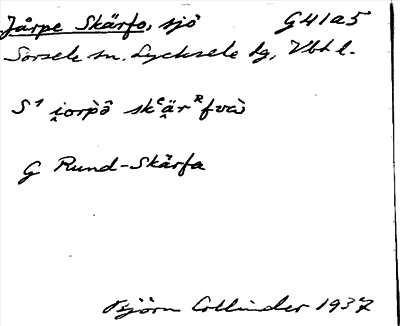 Järpe Skärfo, sjö G41a5
Sorsele sn. Lycksele lg, Vbtl.
S¹ i̭orpô skᵉäʀfvà
G Rund-Skärfa
Björn Collinder 1937